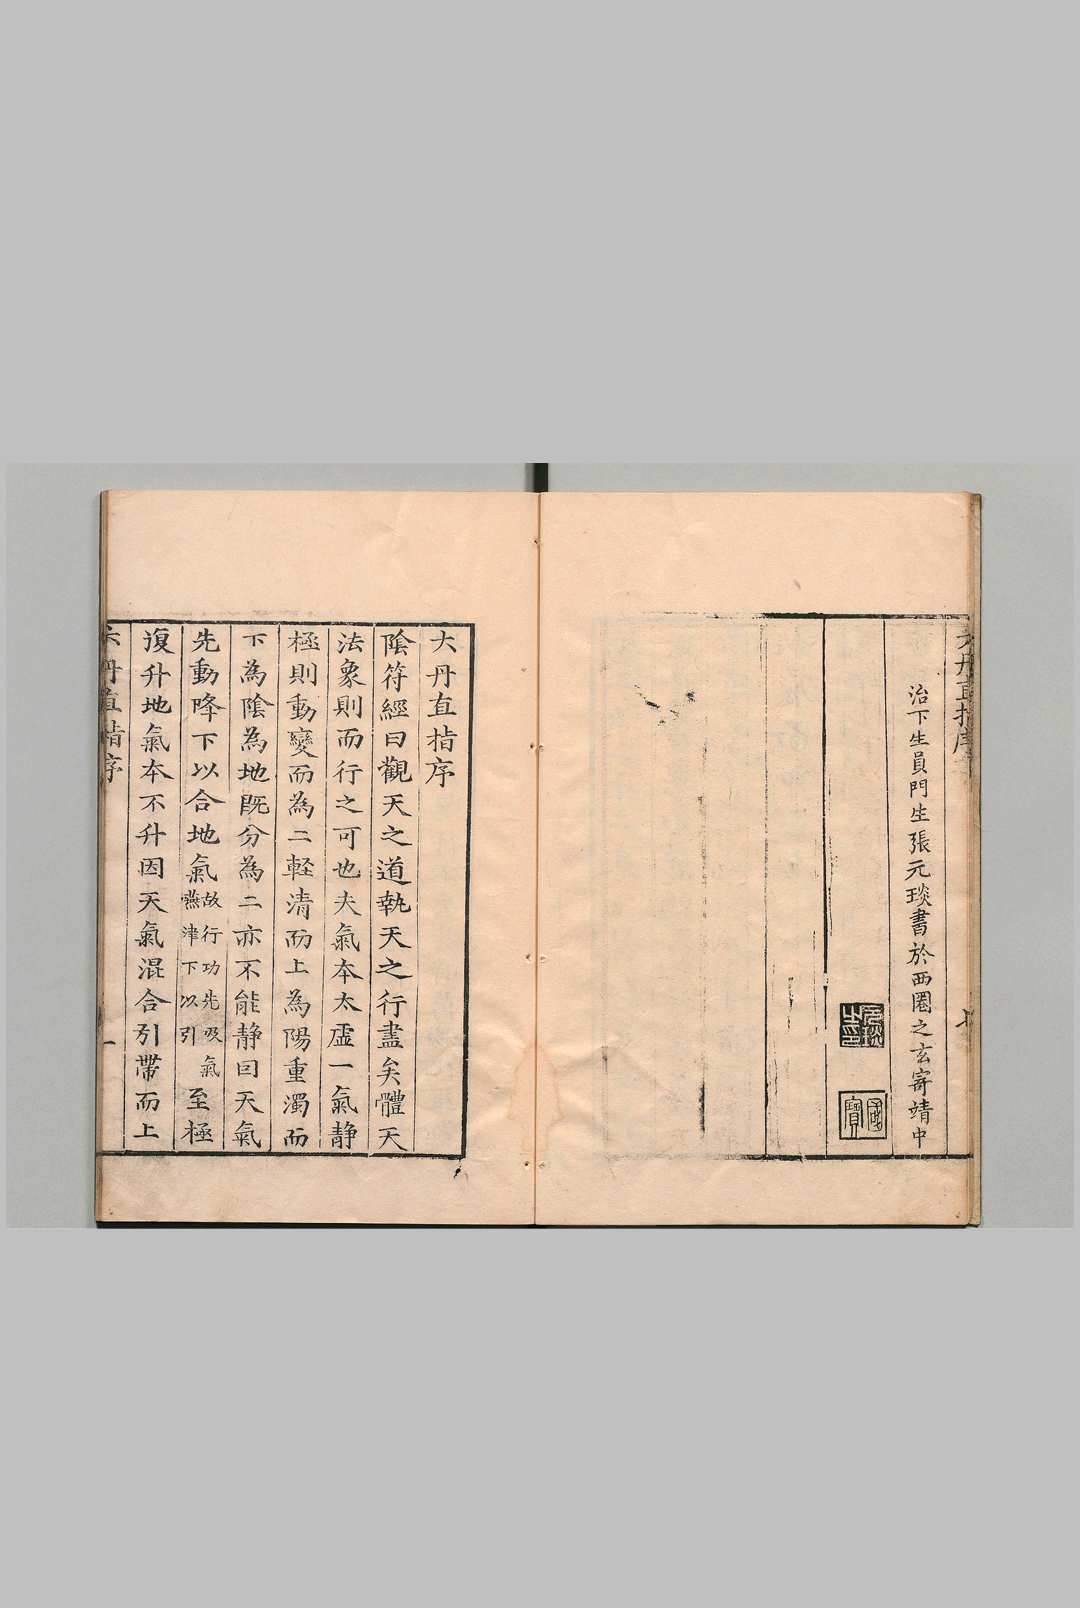 大丹直指序
治下生員門生張元琰書於西圈之玄寄靖中
國寶
大丹直指序
陰符經曰觀天之道執天之行盡矣體天
法象則而行之可也夫氣本太虛一氣静
極則動變而為二輕清而上為陽重濁而
下為陰為地既分為二亦不能静曰天氣
先動降下以合地氣故行功先吸氣嚥津下以引至極
復升地氣本不升因天氣混合引帶而上
大丹直指序
一